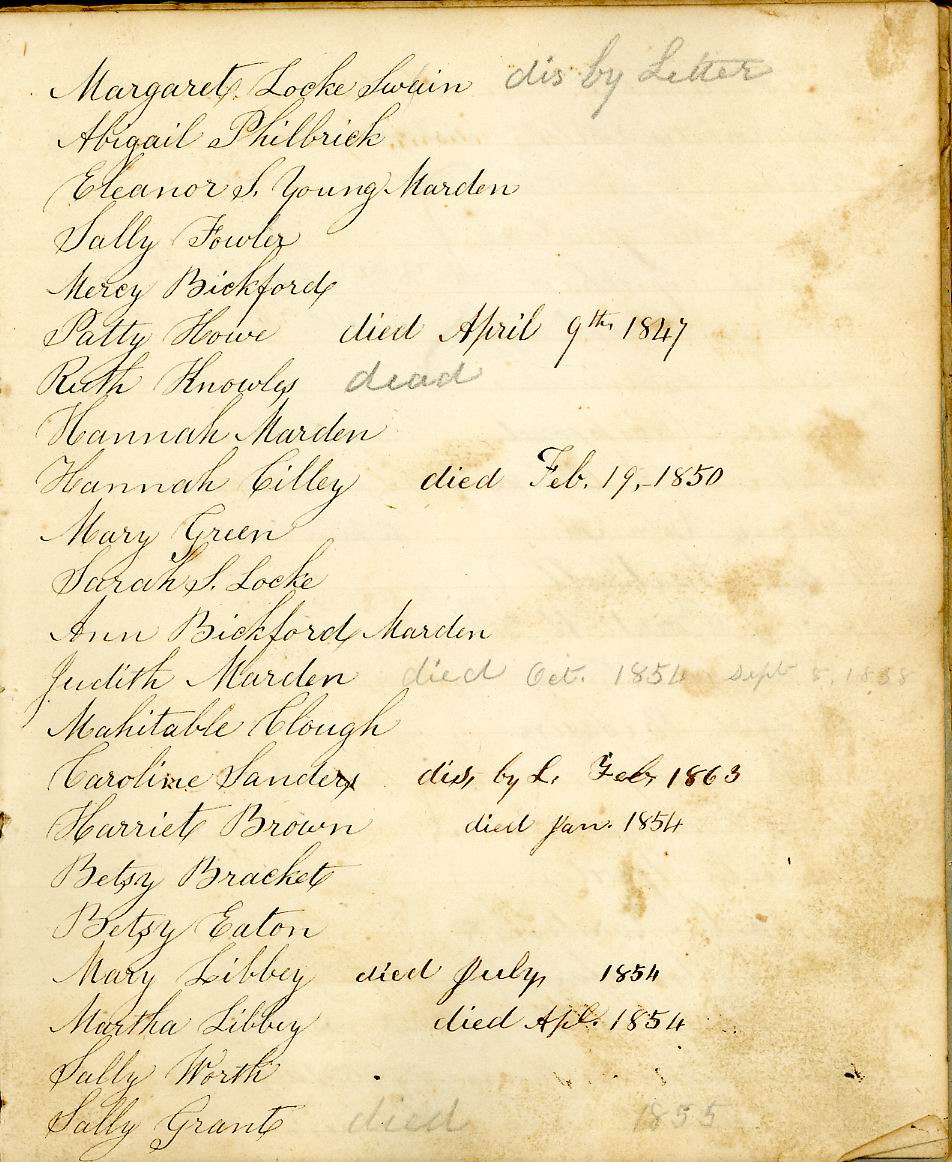 Margaret Locke Swain dis by Letter
Abigail Philbrick
Eleanor S. Young Marden
Sally Fowler
Mercy Bickford
Patty Howe died April 9th 1847
Ruth Knowles dead
Hannah Marden
Hannah Cilley died Feb. 19, 1850
Mary Green
Sarah S. Locke
Ann Bickford Marden
Judith Marden died Oct. 1854 Sept 5, 1858
Mahitable Clough
Caroline Sanders dis, by L. Feb, 1863
Harriet Brown died Jan. 1854
Betsy Bracket
Betsy Eaton
Mary Libbey died July, 1854
Martha Libbey died Apl. 1854
Sally Worth
Sally Grant died 1855